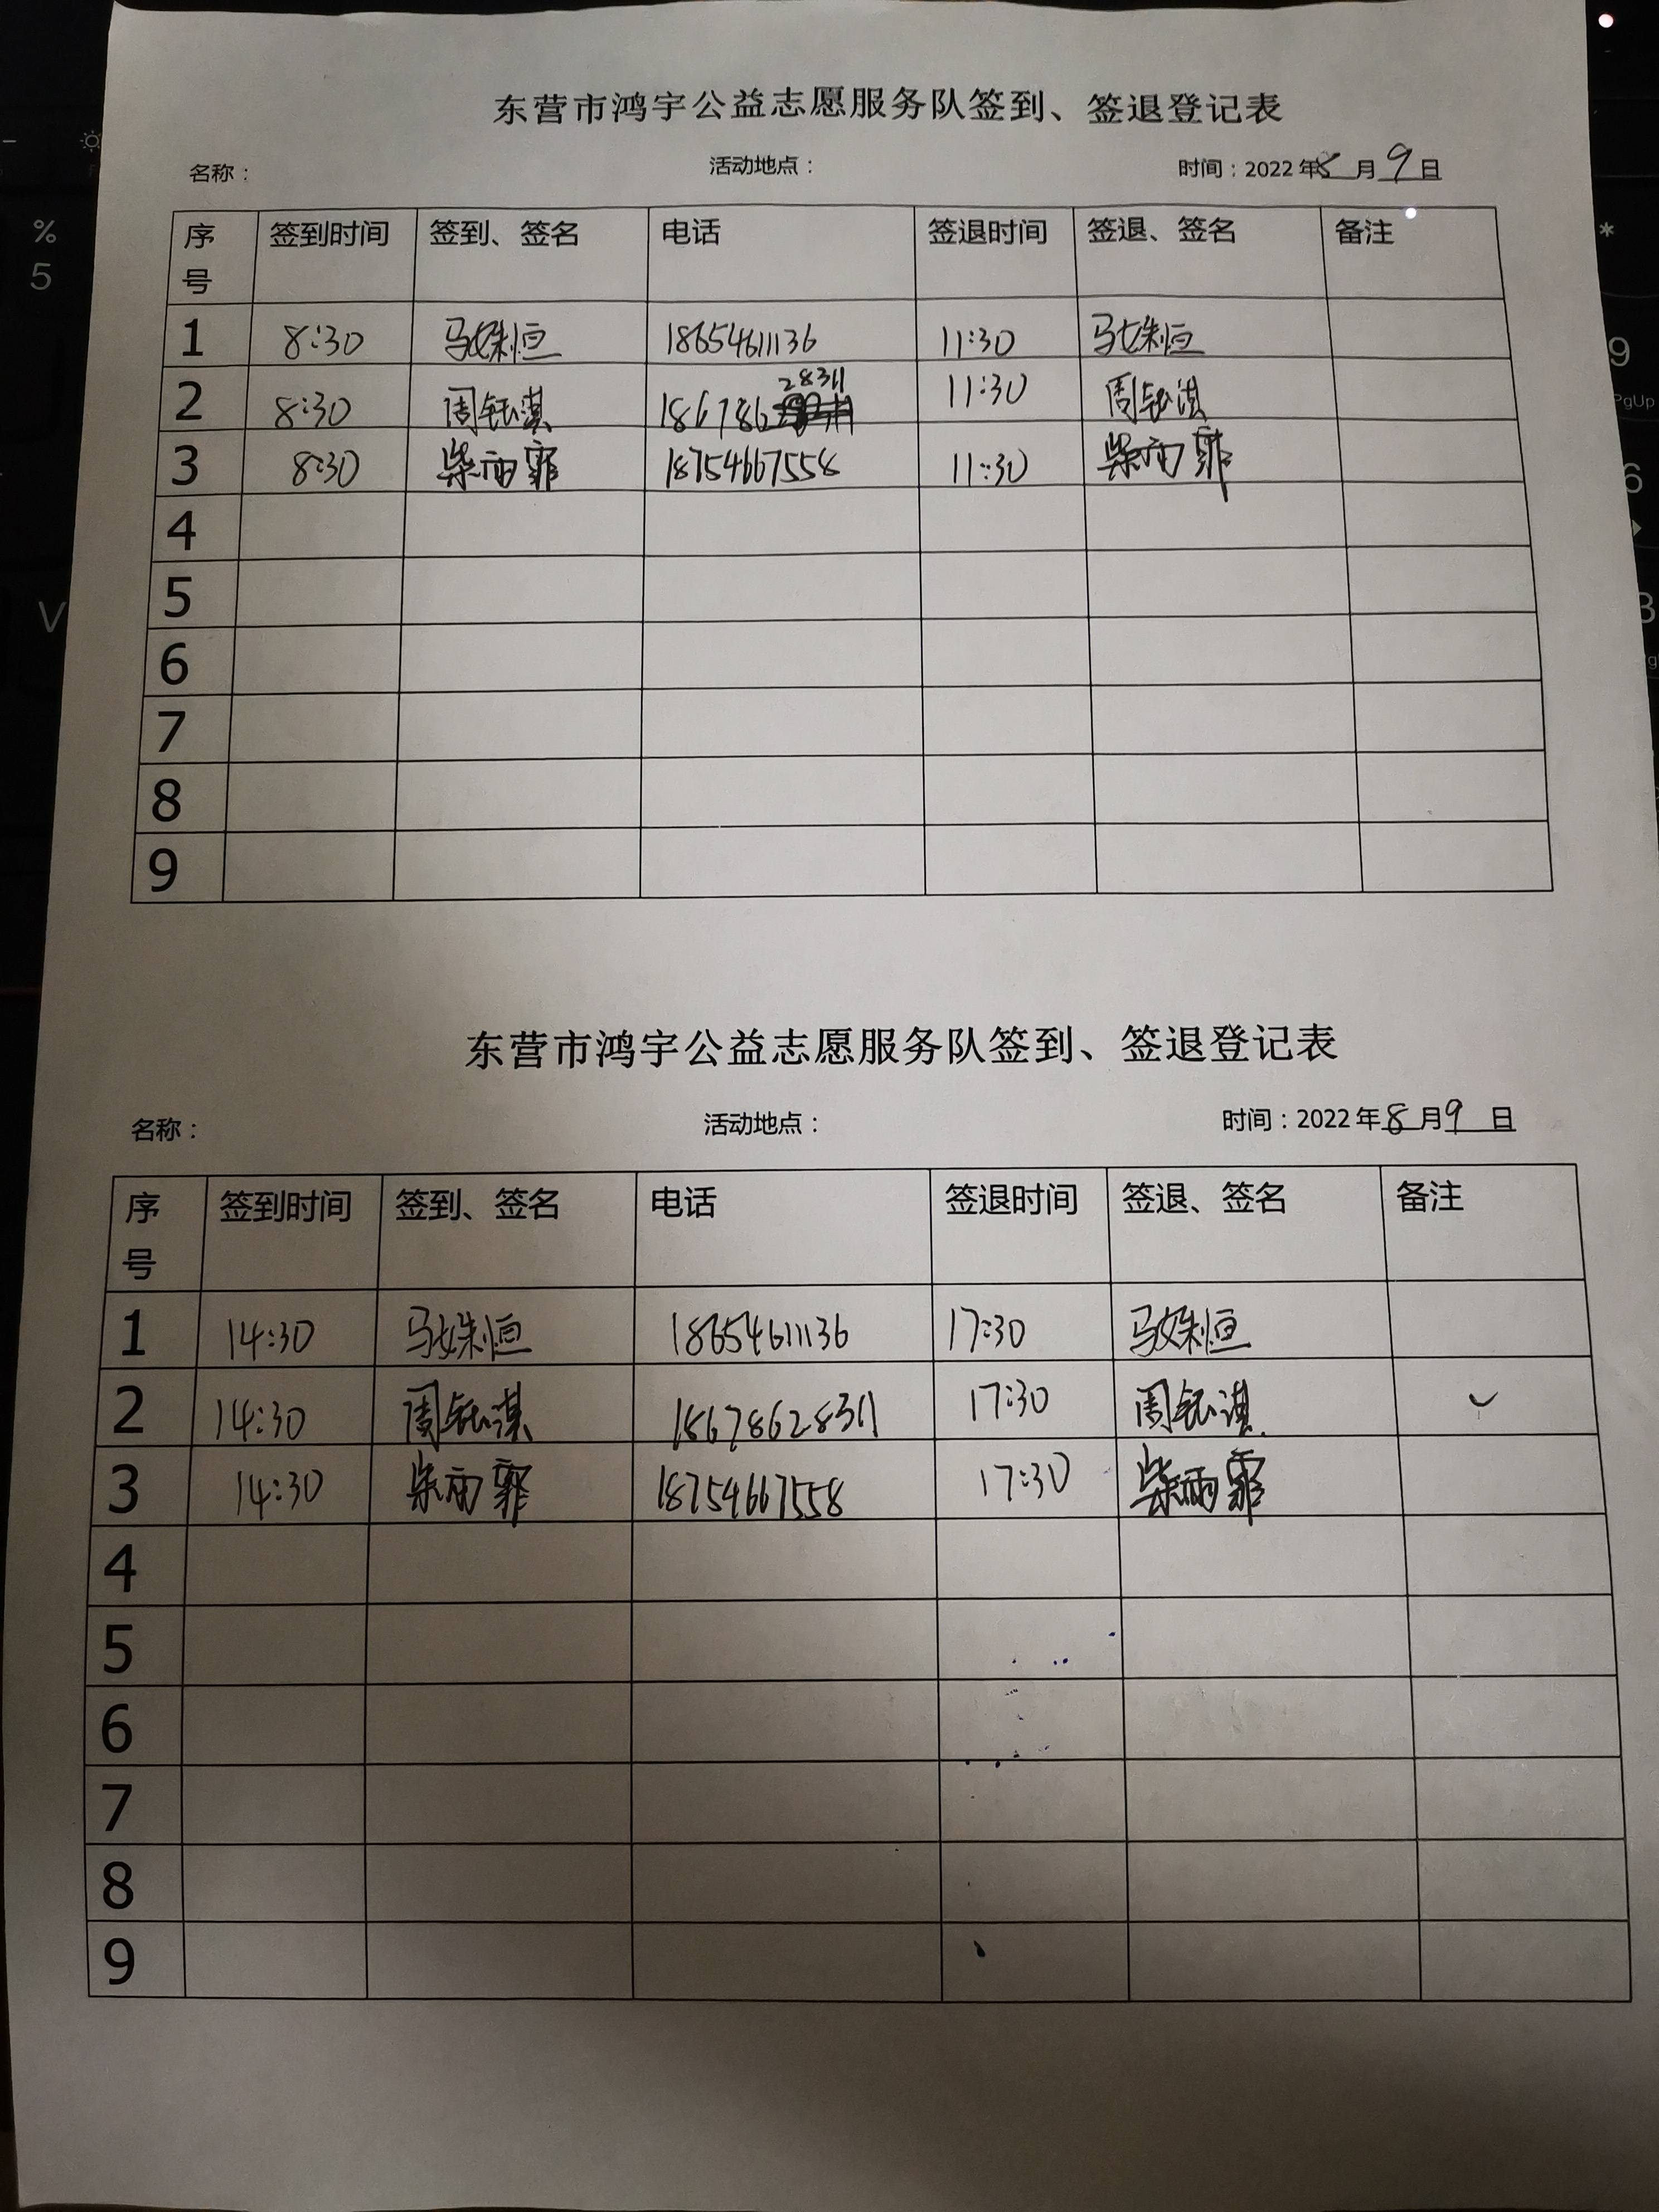 东营市鸿宇公益志愿服务队签到、签退登记表
名称： 活动地点： 时间：2022 年8月9日
序号 签到时间 签到、签名 电话 签退时间 签退、签名 备注
1 8:30 马姝恒 18654611136 11:30 马姝恒
2 8:30 周钰淇 18678628311 11:30 周钰淇
3 8:30 柴雨霏 18754667558 11:30 柴雨霏
4
5
6
7
8
9
东营市鸿宇公益志愿服务队签到、签退登记表
名称： 活动地点： 时间：2022 年8月9日
序号 签到时间 签到、签名 电话 签退时间 签退、签名 备注
1 14:30 马姝恒 18654611136 17:30 马姝恒
2 14:30 周钰淇 18678628311 17:30 周钰淇
3 14:30 柴雨霏 18754667558 17:30 柴雨霏
4
5
6
7
8
9